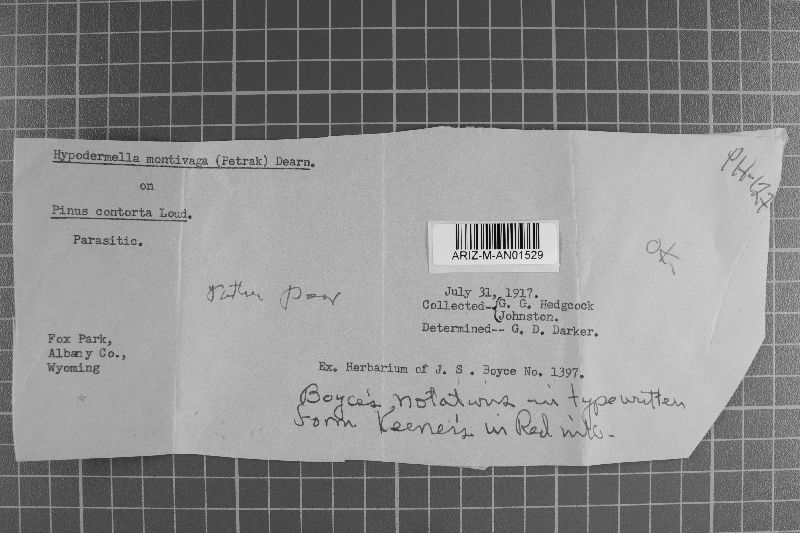 Hypodermella montivaga (Petrak) Dearn.
on
Pinus contorta Loud.
Parasitic.
PH-127
OK
ARIZ-M-AN01529
rather poor
July 31, 1917.
Collected--{G. G. Hedgcock
Johnston.
Determined-- G. D. Darker.
Fox Park,
Albany Co.,
Wyoming
Ex. Herbarium of J. S . Boyce No. 1397.
Boyce's notations in typewritten
form Keener's in Red ink.